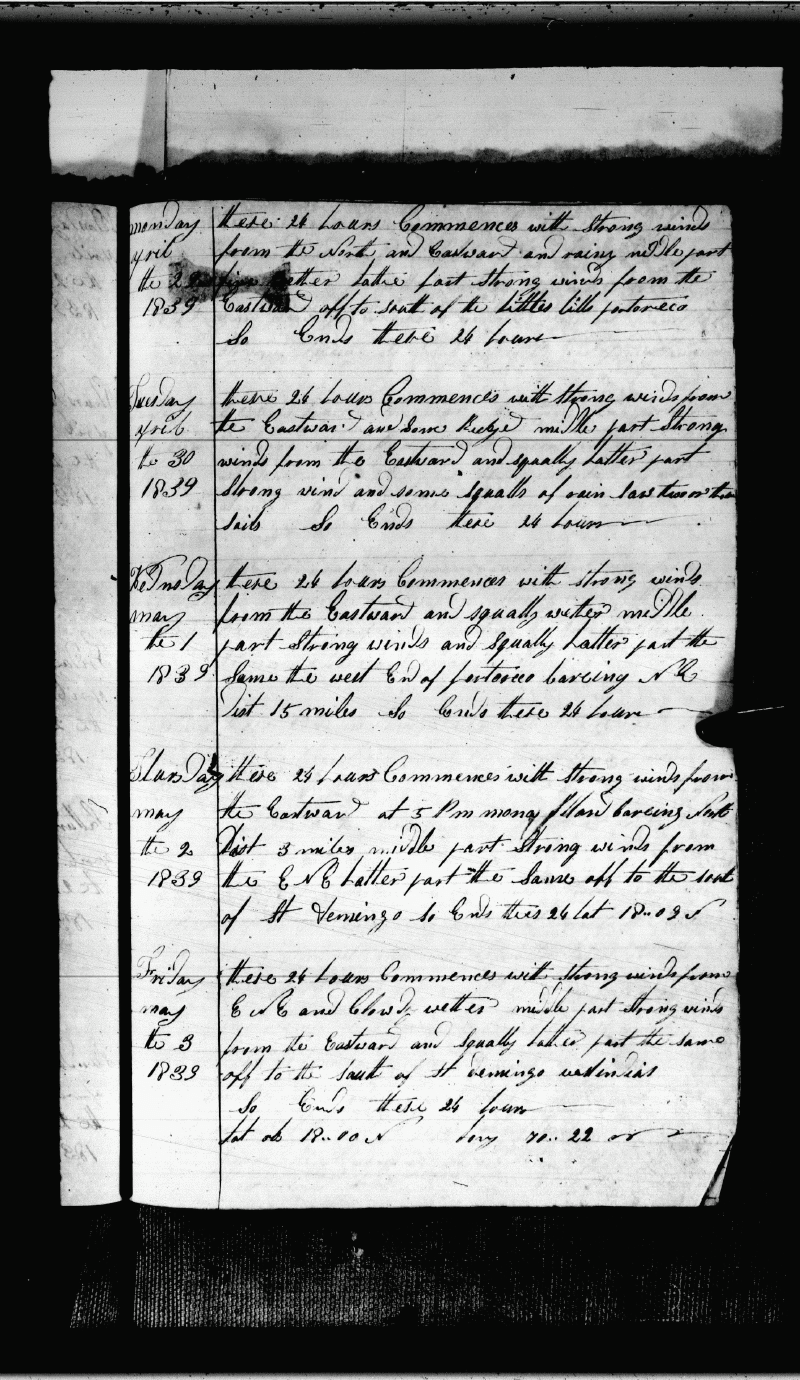 monday these 24 hours Commences with strong winds
april from the North and Eastward and rainy middle part
the 29 fine wether latter part strong winds from the
1839 Eastward off to south of the portoreco
So Ends these 24 hours
Tuesday these 24 hours Commences with strong winds from
april the Eastward and some middle part Strong
the 30 winds from the Eastward and squally Latter part
1839 Strong wind and some squalls of rain
sails So Ends these 24 hours
Wednsday these 24 hours Commences with strong winds
may from the Eastward and squally wether middle
the 1 part Strong winds and Squally Latter part the
1839 Same the west End of portoreco bareing NE
Dist 15 miles So Ends these 24 hours
Thursday these 24 hours Commences with strong winds from
may the Eastward at 5 Pm mony Iland bareing North
the 2 Dist 3 miles middle part Strong winds from
1839 the E N E Latter part the Same off to the south
of St demingo So Ends thes 24 lat 18..09 N
Friday these 24 hours Commences with strong winds from
may E N E and Clowdy wether middle part strong winds
the 3 from the Eastward and Squally latter part the same
1839 off to the south of St demingo westindias
So Ends these 24 hours
Lat ob 18..00 N Long 70..22 w